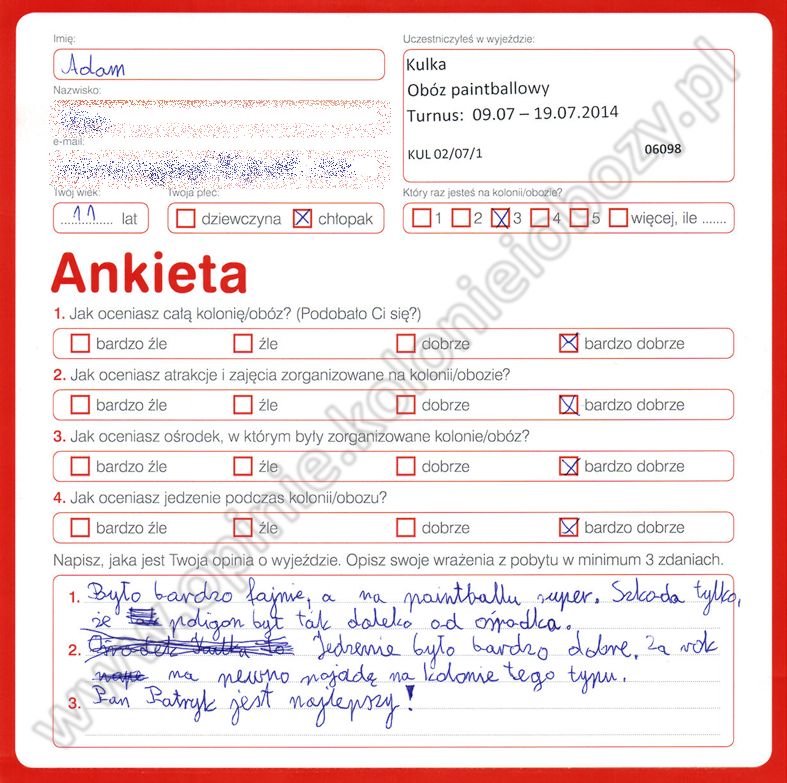 Imię:
Adam
Uczestniczyłeś w wyjeździe:
Kulka
Obóz paintballowy
Turnus: 09.07 – 19.07.2014
KUL 02/07/1
06098
Nazwisko:
e-mail:
Twój wiek:
11 lat
Twoja płeć:
dziewczyna chłopak
Który raz jesteś na kolonii/obozie?
1 2 3 4 5 więcej, ile .......
Ankieta
1. Jak oceniasz całą kolonię/obóz? (Podobało Ci się?)
bardzo źle źle dobrze bardzo dobrze
2. Jak oceniasz atrakcje i zajęcia zorganizowane na kolonii/obozie?
bardzo źle źle dobrze bardzo dobrze
3. Jak oceniasz ośrodek, w którym były zorganizowane kolonie/obóz?
bardzo źle źle dobrze bardzo dobrze
4. Jak oceniasz jedzenie podczas kolonii/obozu?
bardzo źle źle dobrze bardzo dobrze
Napisz, jaka jest Twoja opinia o wyjeździe. Opisz swoje wrażenia z pobytu w minimum 3 zdaniach.
1. Było bardzo fajnie, a na paintballu super. Szkoda tylko,
że poligon był tak daleko od ośrodka.
2. Jedzenie było bardzo dobre. Za rok
na pewno pojadę na kolonie tego typu.
3. Pan Patryk jest najlepszy!
www.opinie.kolonieiobozy.pl